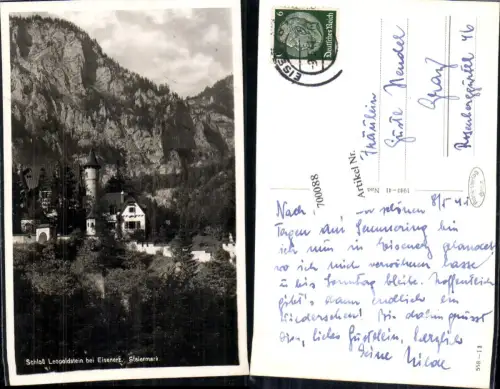 Schloß Leopoldstein bei Eisenerz, Steiermark
6
Deutsches Reich
EISEN
Fräulein
Gustl
Graz
Rosenberggürtel 46
Artikel Nr.
700088
8/5 41
Nach schönen
Tagen am Semmering bin
ich nun in Eisenerz gelandet
wo ich mich verwöhnen lasse
u. bis Sonntag bleibe. Hoffentlich
gibt's dann endlich ein
Wiedersehen! Bis dahin grüsst
Dich, liebes Gustelein, herzlichst
Deine Hilde